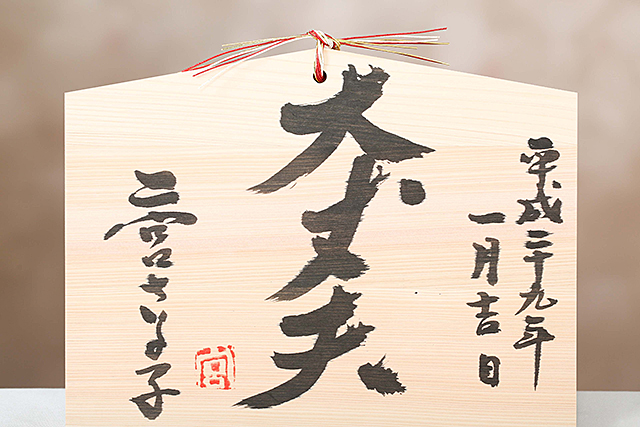 平成二十九年
一月吉日
大丈夫
二宮さよ子
宮